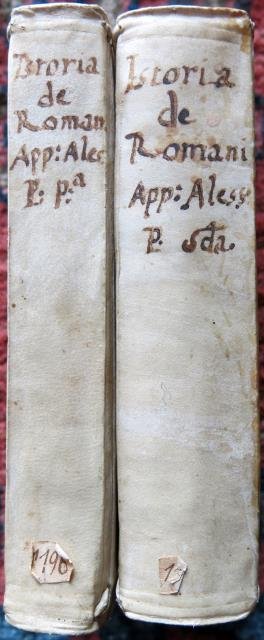 Istoria
de
Roman
App: Ales
P: p.a
1190
Istoria
de
Romani
App: Aless:
P. sda.